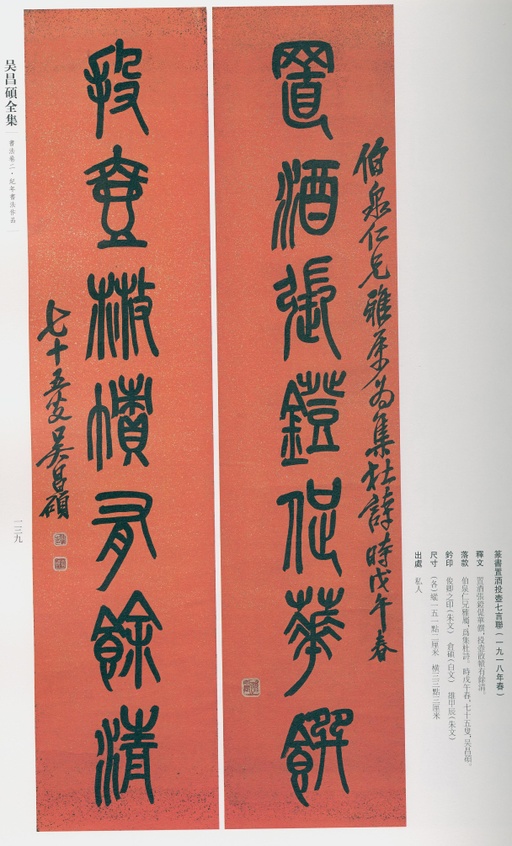 篆書置酒投壺七言聯（一九一八年春）
釋文 置酒張鐙促華饌，投壺散帙有餘清。
落款 伯泉仁兄雅屬，爲集杜詩。時戊午春，七十五叟，吳昌碩。
鈐印 俊卿之印（朱文） 倉碩（白文） 雄甲辰（朱文）
尺寸 （各）縱一五一點二厘米 橫三三點三厘米
出處 私人
伯泉仁兄雅屬為集杜詩時戊午春
置酒張鐙促華饌
投壺散幘有餘清
七十五叟吳昌碩
吳昌碩全集
書法卷二·紀年書法作品
一三九